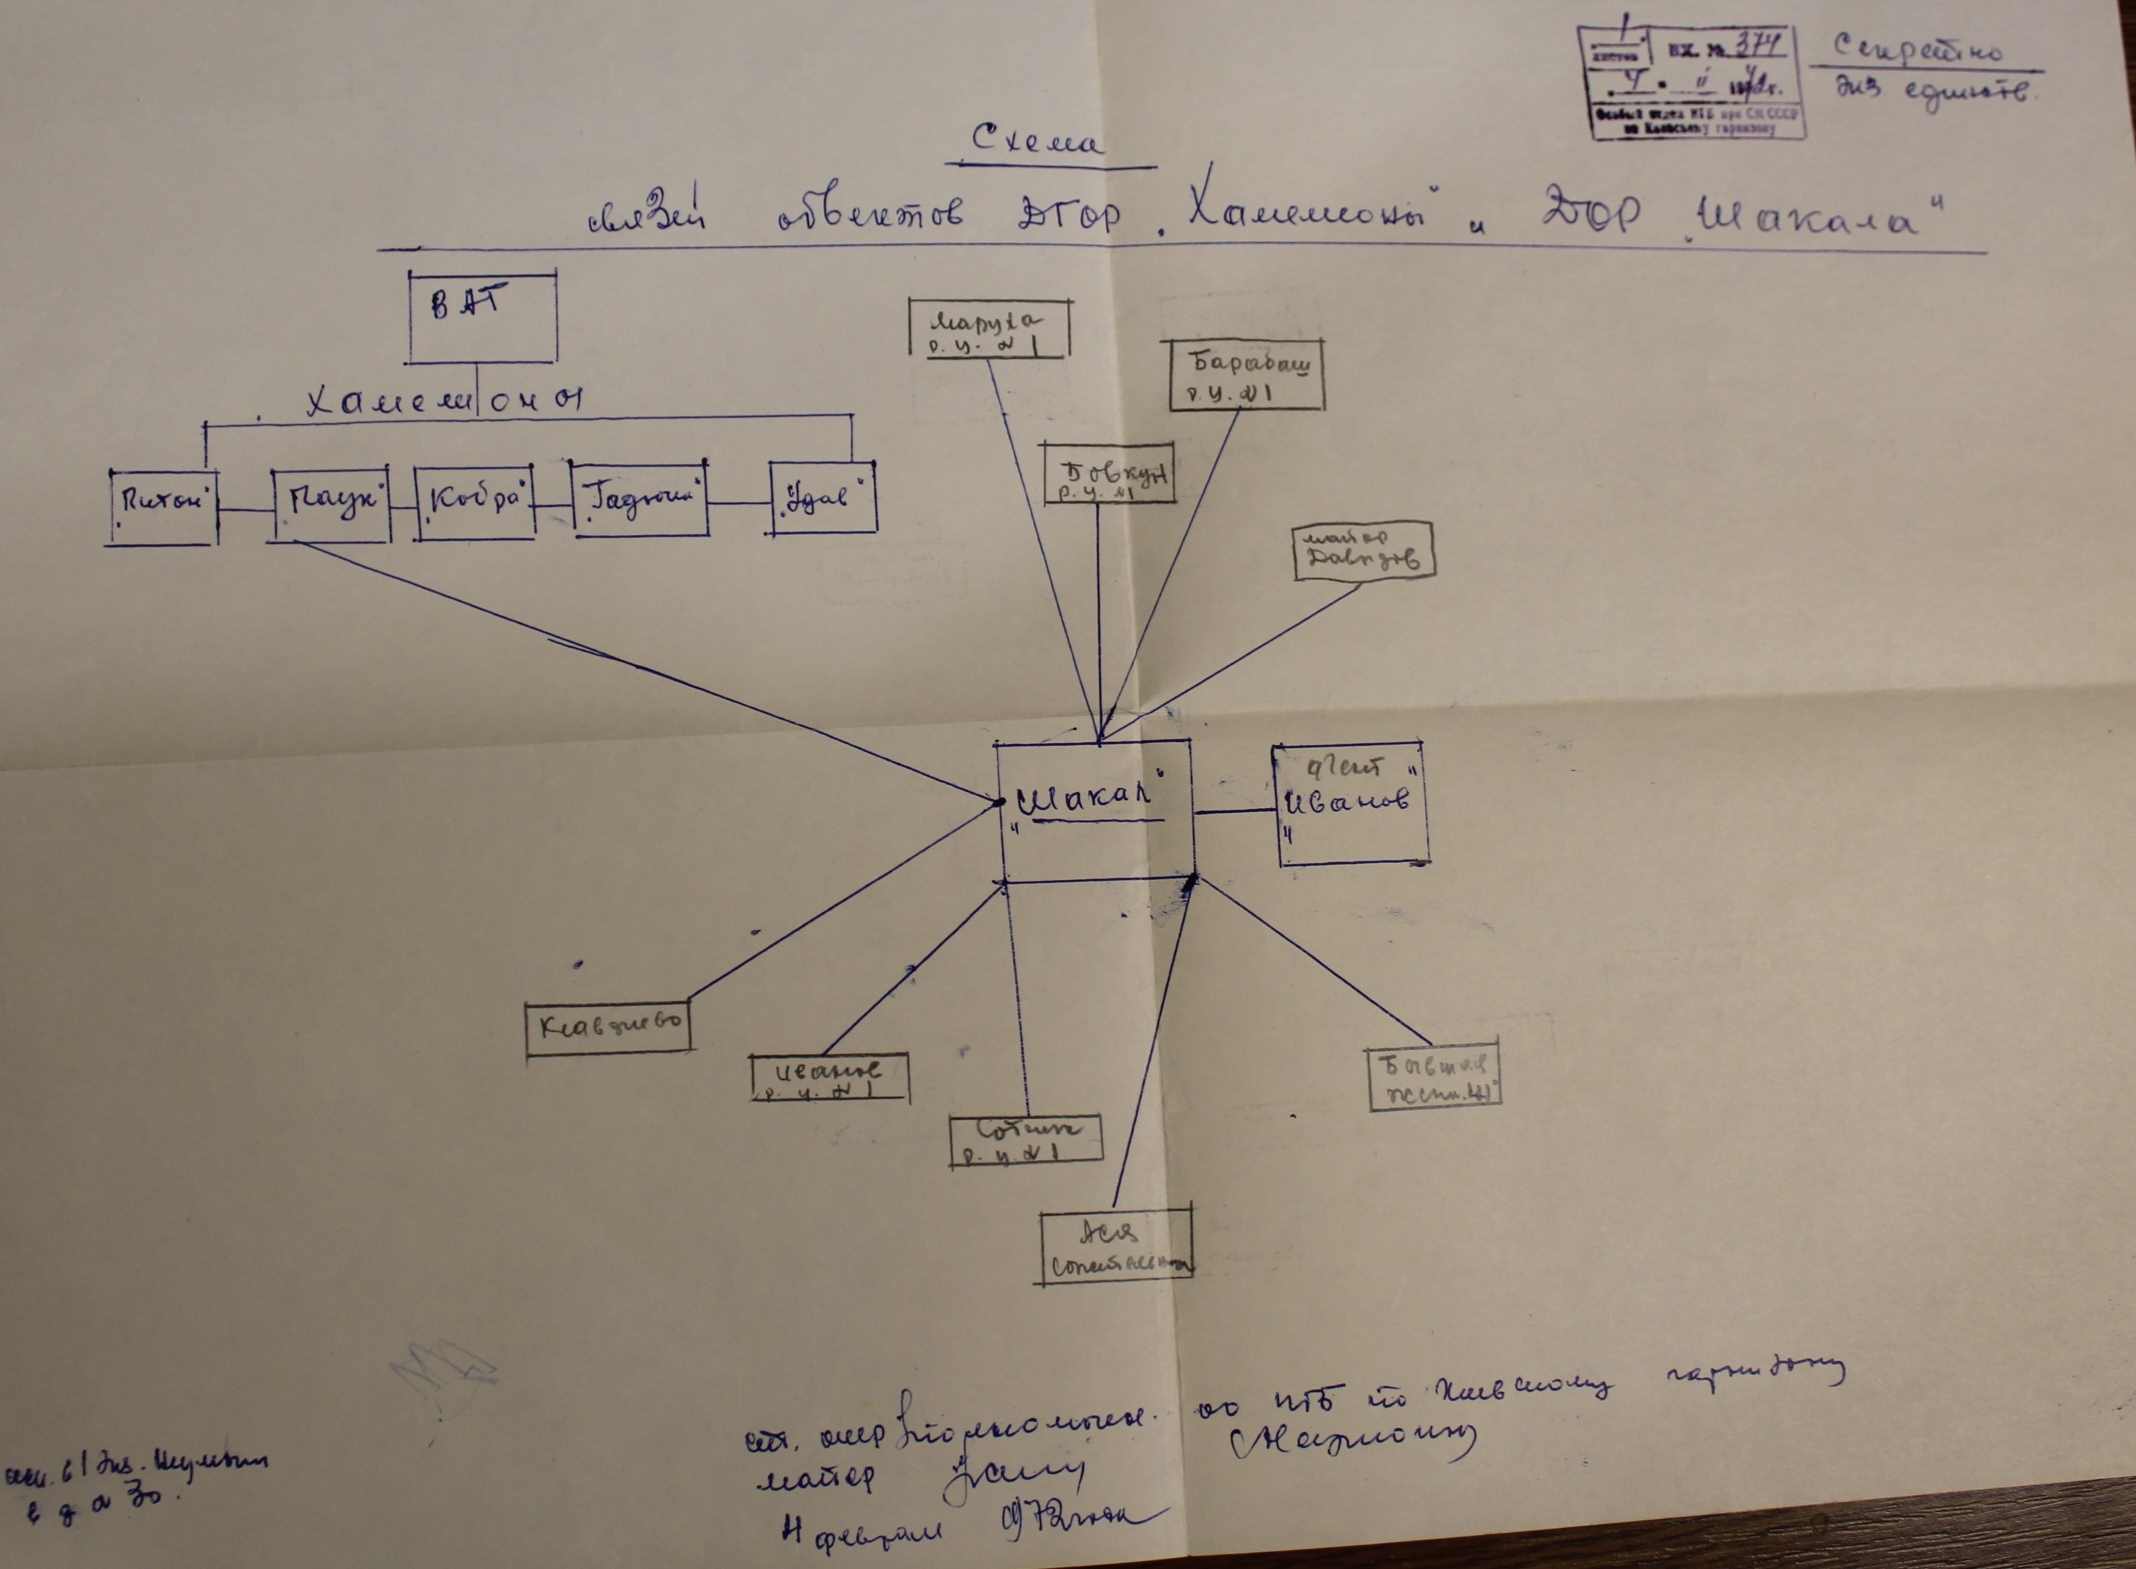 1
листов
ВХ. № 374
4 " II 1972г.
Особый отдел КГБ при СМ СССР
по Киевскому гарнизону
Секретно
Экз единств.
Схема
связей объектов ДГОР „Хамелеоны" и ДОР „Шакала"
ВАТ
Хамелеоны
„Питон"
„Паук"
„Кобра"
„Гадюка"
„Удав"
Маруха
р. ц. №1
Барабаш
р. ц. №1
Бовкун
р. ц. №1
майор
Давыдов
„Шакал"
агент
„Иванов"
Клавдиево
Иванов
р. ц. №1
Сотник
р. ц. №1
Ася
Бывшая
жена „Ш"
ст. оперуполномочен. ОО КГБ по Киевскому гарнизону
майор
4 февраля 1972 года